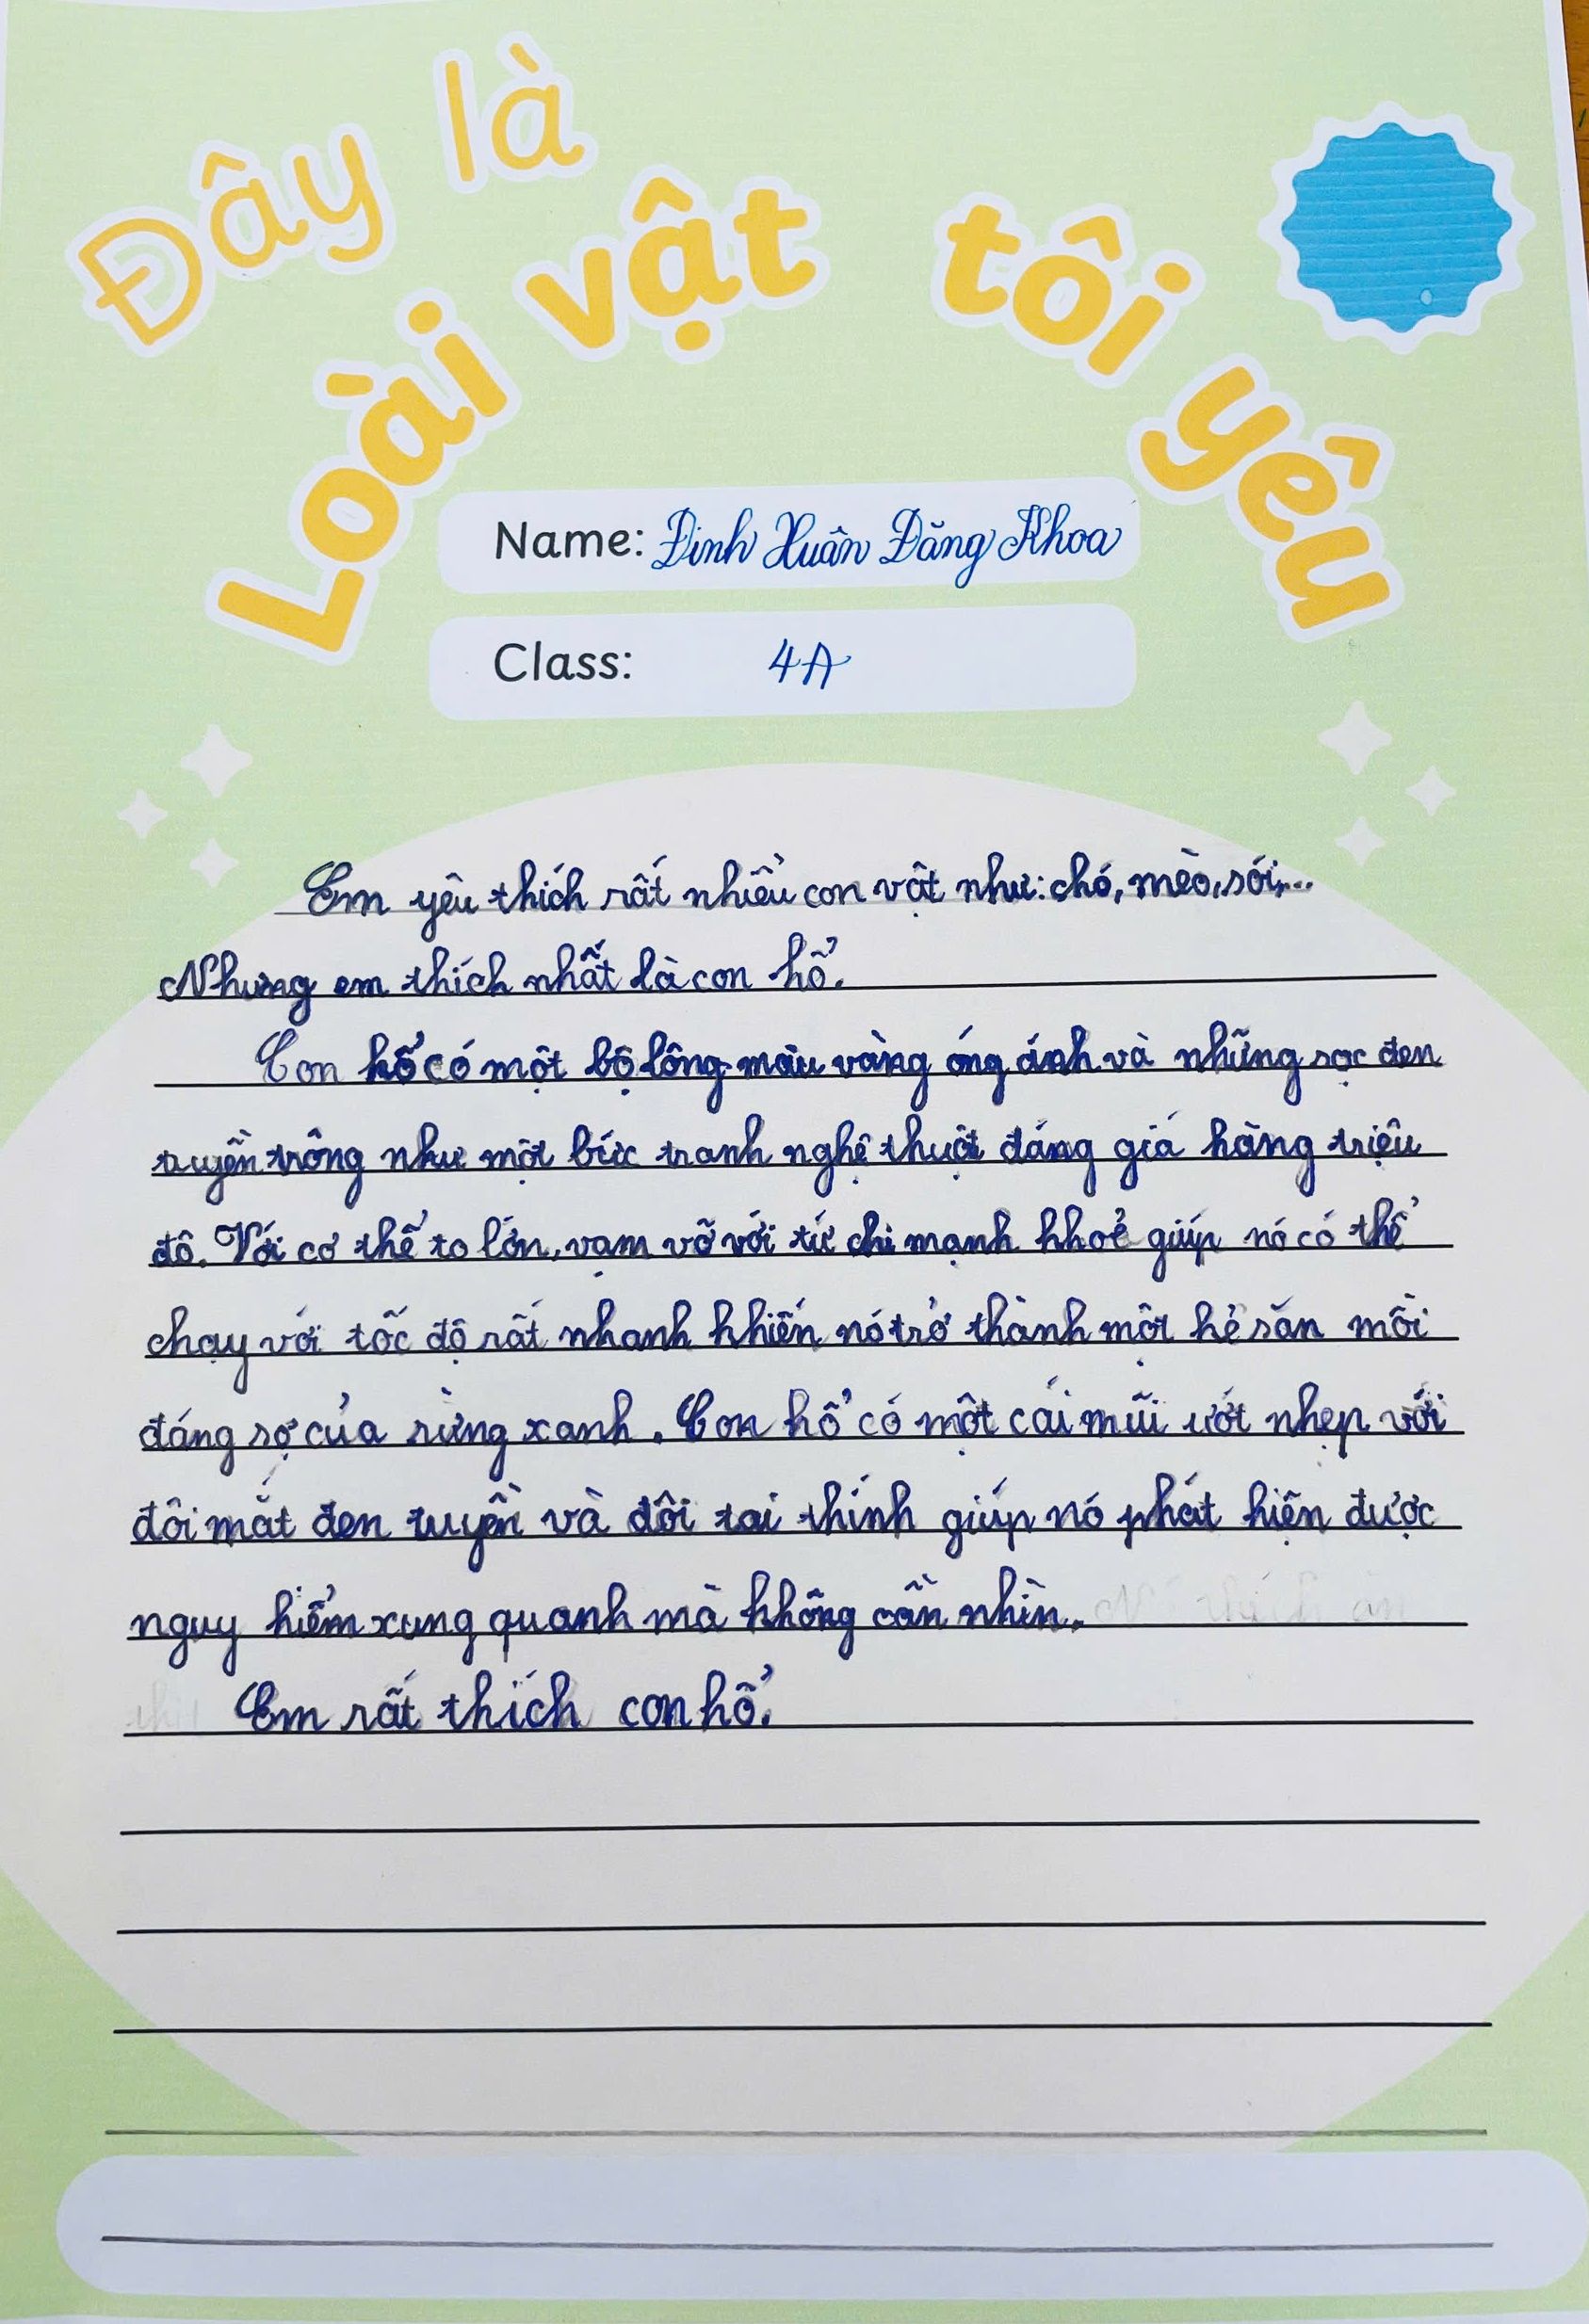 Đây là
Loài vật tôi yêu
Name: Đinh Xuân Đăng Khoa
Class: 4A
Em yêu thích rất nhiều con vật như: chó, mèo, sói,...
Nhưng em thích nhất là con hổ.
Con hổ có một bộ lông màu vàng óng ánh và những sọc đen
tuyền trông như một bức tranh nghệ thuật đáng giá hàng triệu
đô. Với cơ thể to lớn, vạm vỡ với tứ chi mạnh khoẻ giúp nó có thể
chạy với tốc độ rất nhanh khiến nó trở thành một kẻ săn mồi
đáng sợ của rừng xanh. Con hổ có một cái mũi ướt nhẹp với
đôi mắt đen tuyền và đôi tai thính giúp nó phát hiện được
nguy hiểm xung quanh mà không cần nhìn.
Em rất thích con hổ.